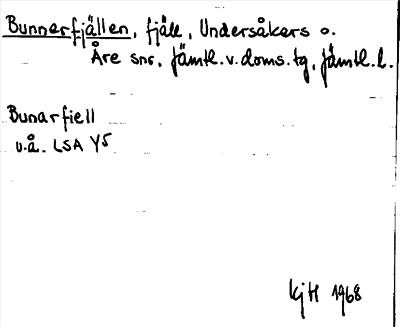 Bunnerfjällen, fjäll, Undersåkers o.
Åre snr, Jämtl. v. doms. tg, Jämtl. l.
Bunarfiell
u.å. LSA Y5
KjH 1968